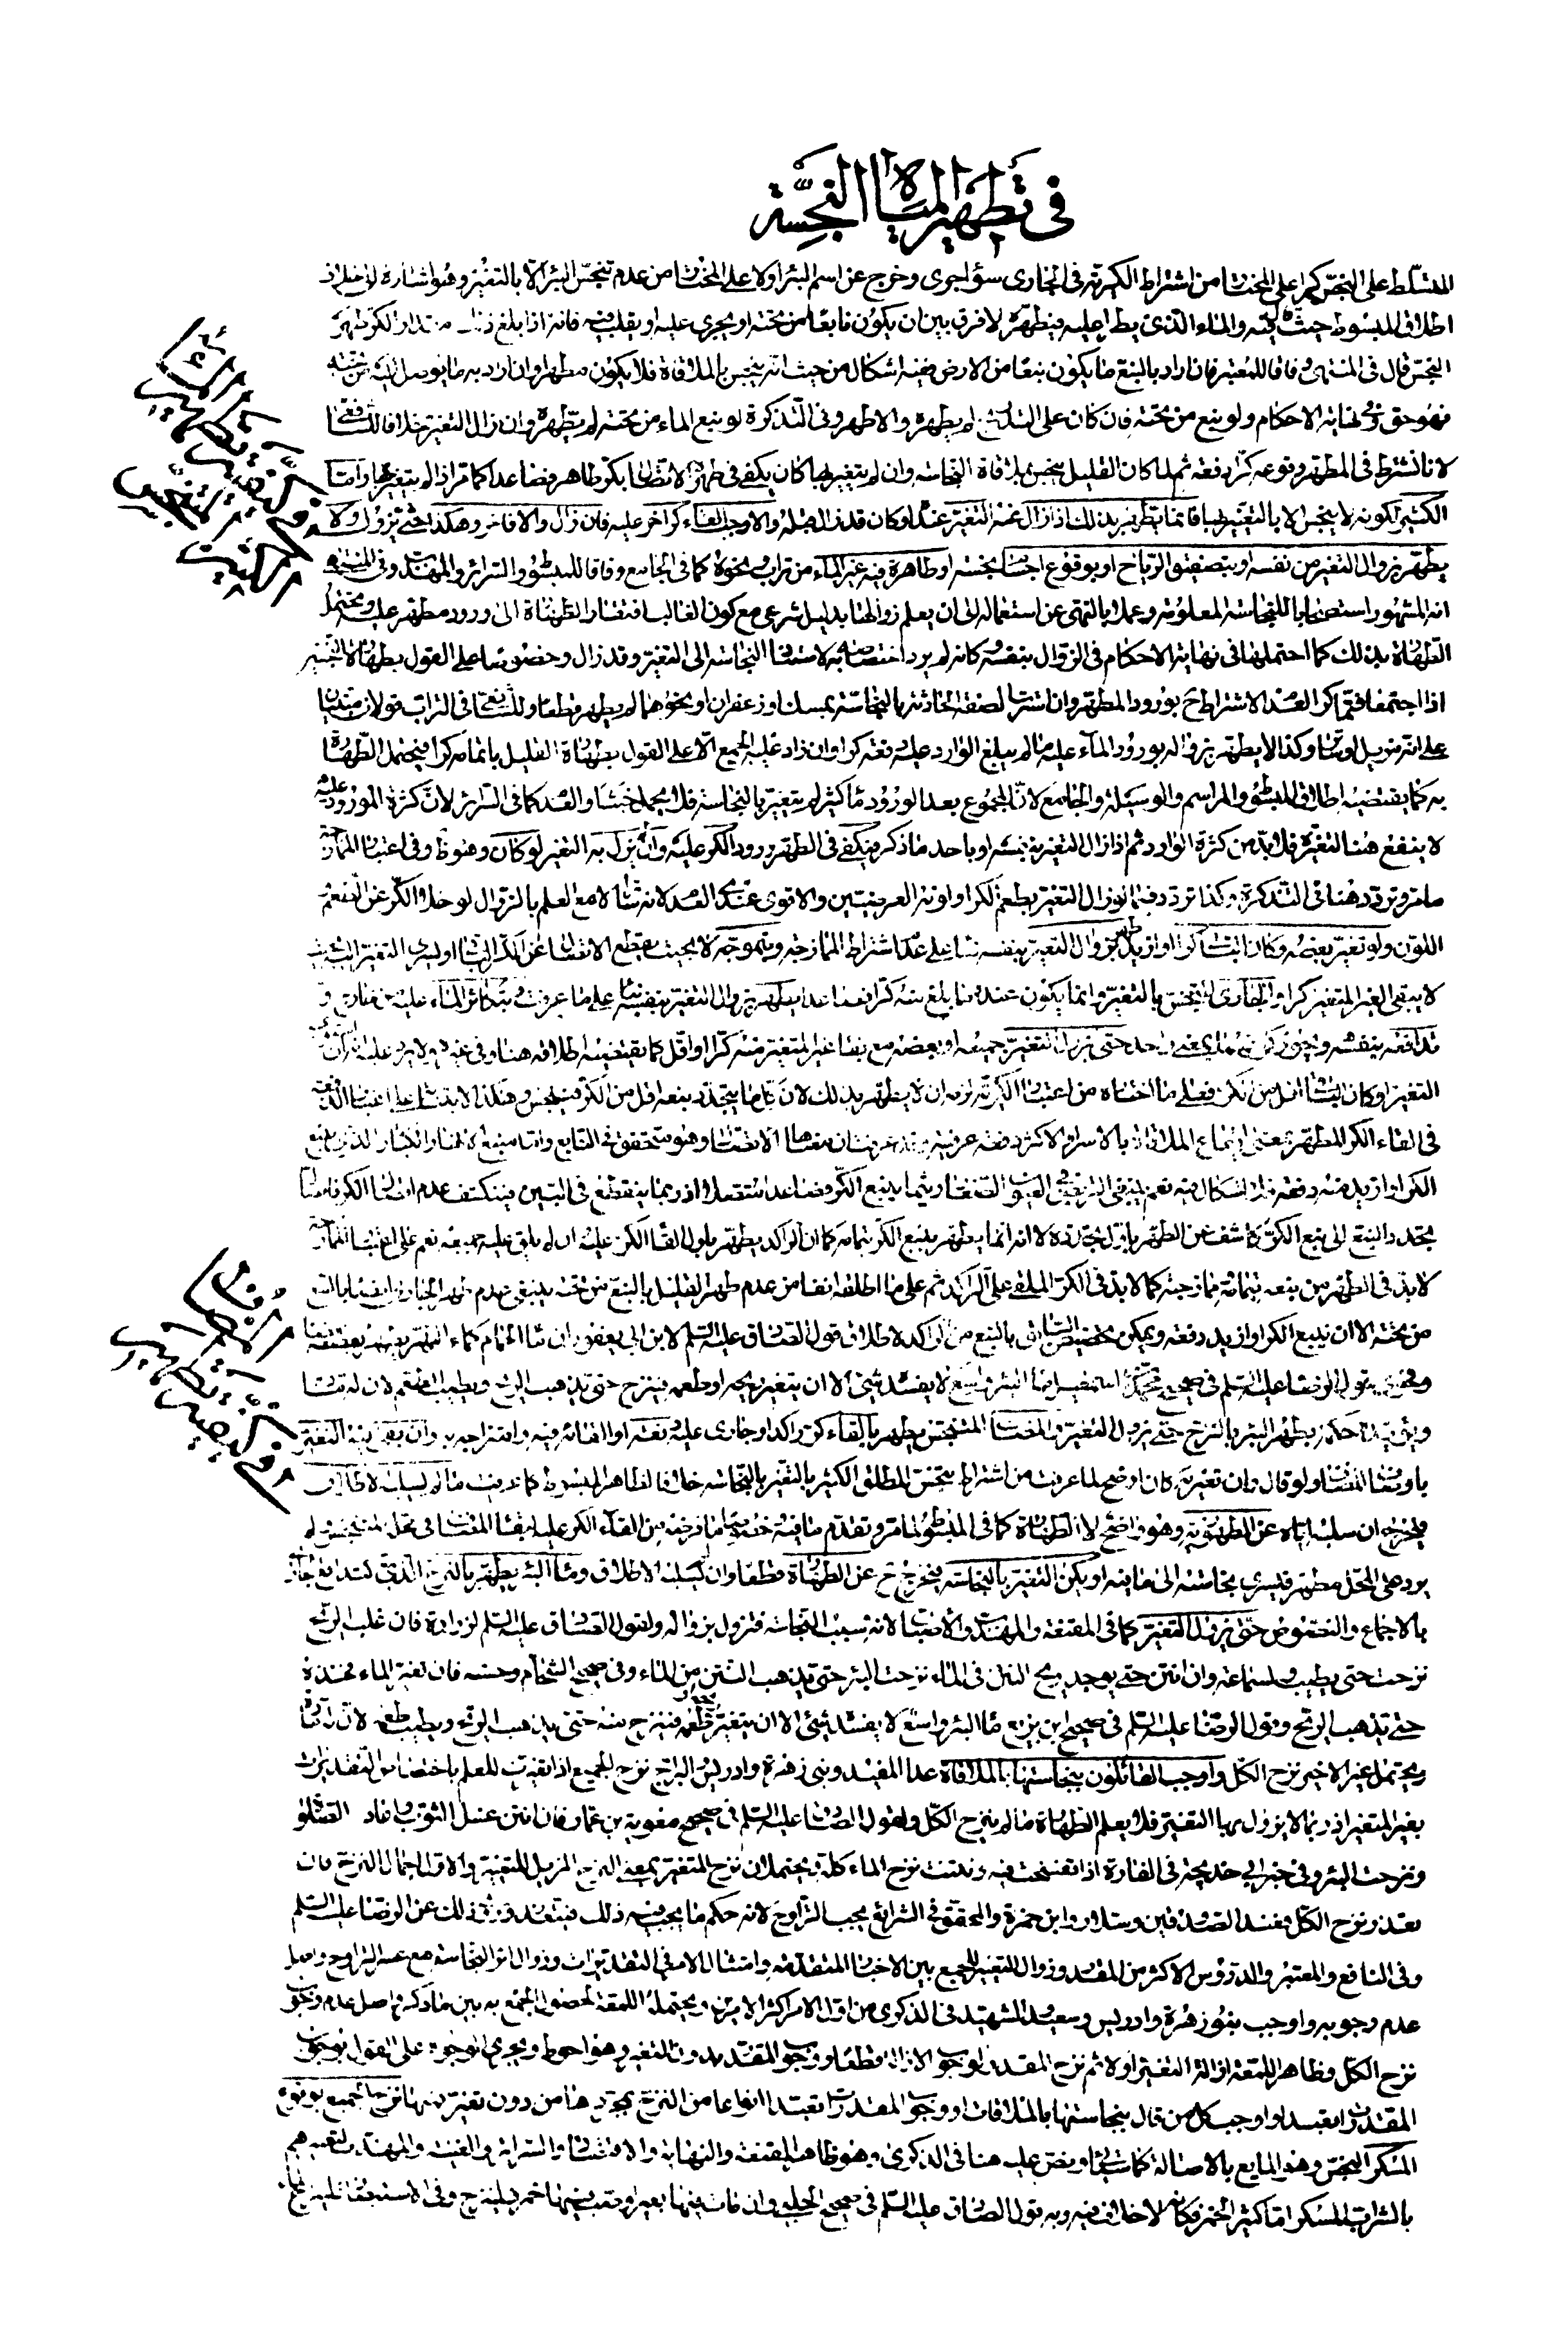 في تطهير المياه النجسة
المتسلط على النجس كرا على المختار من اشتراط الكرية في الجاري سواء جرى وخرج عن اسم البئر اولا على المختار من عدم تنجس البئر الا بالتغير وهو اشارة الى خلاف
اطلاق المبسوط حيث قال فيه والماء الذي يطرأ عليه فيطهره لا فرق بين ان يكون نابعا من تحته او يجري عليه او يقلب فيه فانه اذا بلغ ذلك مقدار الكر طهر
النجس قال في المنتهى وفاقا للمعتبر فان اراد بالنبع ما يكون نبعا من الارض ففيه اشكال من حيث انه ينجس بالملاقاة فلا يكون مطهرا وان اراد به ما يوصل اليه من تحته
فهو حق وفي نهاية الاحكام ولو نبع من تحته فان كان على التدريج لم يطهره والا طهر وفي التذكرة لو نبع الماء من تحته لم يطهره وان زال التغير خلافا للشافعي
لانا نشترط في المطهر وقوعه كرا دفعة ثم لما كان القليل ينجس بملاقاة النجاسة وان لم يتغير بها كان يكفي في طهره الاتصال بكر طاهر فصاعدا كما مر اذا لم يتغير بها واما
الكثير لكونه لا ينجس الا بالتغير بها فانما يطهر بذلك اذا زال عنه التغير عنده او كان قد زال قبله والا وجب القاء كر اخر عليه فان زال والا فاخر وهكذا حتى يزول ولا
يطهر بزوال التغير من نفسه او بتصفيق الرياح او بوقوع اجسام نجسة او طاهرة فيه غير الماء من تراب ونحوه كما في الجامع وفاقا للمبسوط والسرائر والمهذب وفي المنتهى
انه المشهور استصحابا للنجاسة المعلومة وعملا بالنهي عن استعماله الى ان يعلم زوالها بدليل شرعي مع كون الغالب افتقار الطهارة الى ورود مطهر عليه ويحتمل
الطهارة بذلك كما احتملها في نهاية الاحكام في الزوال بنفسه كانه لم يرد اختصاصه به لاستناد النجاسة الى التغير وقد زال وخصوصا على القول بطهارة النجسين
اذا اجتمعا فتمما كرا لعدم الاشتراط ح بورود المطهر وان استتر الصفة الحادثة بالنجاسة بمسك او زعفران او نحوهما لم يطهر قطعا وللشافعي في التراب قولان مبنيان
على انه مزيل او ساتر وكذا لا يطهر بزواله بورود الماء عليه ما لم يبلغ الوارد عليه دفعة كرا وان زاد عليه الجميع الا على القول بطهارة القليل باتمامه كرا فيحتمل الطهارة
به كما يقتضيه اطلاق المبسوط والمراسم والوسيلة والجامع لان المجموع بعد الورود ماء كثير لم يتغير بالنجاسة فلا يحمل خبثا والعدم كما في السرائر لان كثرة المورود عليه
لا ينفع هنا لتغيره فلا بد من كثرة الوارد ثم اذا زال التغير بنفسه او باحد ما ذكر فيكفي في الطهر ورود الكر عليه وان لم يزل به التغير لو كان وهو ظ وفي اعتبار الممازجة
ما مر وتردد هنا في التذكرة وكذا تردد فيما لو زال التغير بطعم الكر او لونه العرضيين والاقوى عندي العدم لانه ساتر لا مع العلم بالزوال لو خلا الكر عن الطعم
اللون ولو تغير بعضه وكان الباقي كرا او ازيد طهر بزوال التغير بنفسه بناء على عدم اشتراط الممازجة وبتموجه لا بحيث يقطع الاتصال عن الكر الباقي او يسري التغير اليه بحيث
لا يبقى الغير المتغير كرا والجاري لا ينجس بالتغير وانما يكون عنده ما بلغ منه كرا فصاعدا يطهر بزوال التغير بنفسه بناء على ما عرفت وبتكاثر الماء عليه من خارج و
تدافعه بنفسه
التغير او كان الباقي اقل من كر فعلى ما اختاره من اعتبار الكرية لزمه ان لا يطهر بذلك لان كل ما يتجدد نبعه اقل من الكر فينجس وهكذا لابتنائه على اعتبار الدفعة
في القاء الكر المطهر بمعنى اجتماع الملاقاة بالاسر او الاكثر دفعة عرفية وقد عرفت ان معناها الاتصال وهو متحقق في النابع واما منبع الانهار الكبار الذي ينبع
الكر او ازيد منه دفعة فلا اشكال فيه نعم ينبغي التربص في العيون الصغار ريثما ينبع الكر فصاعدا متصلا اذ ربما ينقطع في البين فينكشف عدم اتصال الكر فاما
تجدد النبع الى نبع الكر كاشف عن الطهر باول تجدده لا انه انما يطهر بنبع الكر بتمامه كما ان الراكد يطهر باول القاء الكر عليه وان لم يلق عليه جميعه نعم على اعتبار الممازجة
لا بد في الطهر من نبعه بتمامه ممازجته كما لا بد في الكر الملقى على الراكد ثم على ما اطلقه انفا من عدم طهر القليل بالنبع من تحته ينبغي عدم طهر الجاري ايضا بالنبع
من تحته الا ان ينبع الكر او ازيد دفعة ويمكن تخصيص السابق بالنبع من الراكد لاطلاق قول الصادق عليه السلم لابن ابي يعفور ان ماء الحمام كماء النهر يطهر بعضه بعضا
وفحوى قول الرضا عليه السلم في صحيح محمد بن اسمعيل ماء البئر واسع لا يفسده شيء الا ان يتغير ريحه او طعمه فينزح حتى يذهب الريح ويطيب طعمه لان له مادة
حكم بطهر البئر بالنزح حتى يزول التغير والمضاف المتنجس يطهر بالقاء كر راكد او جاري عليه دفعة او القائه فيه وامتزاجه به وان بقي فيه التغير
باوصاف المضاف ولو قال وان تغير به كان اوضح لما عرفت من اشتراط تنجس المطلق الكثير بالتغير بالنجاسة خلافا لظاهر المبسوط كما عرفت ما لم يسلبه الاطلاق
فيخرج ان سلبه اياه عن الطهورية وهو واضح لا الطهارة كما في المبسوط لما مر وتقدم ما فيه
يرد على المحل مطهر فيسري نجاسته الى مافيه او يكن التغير بالنجاسة فيخرج ح عن الطهارة قطعا وان لم يسلبه الاطلاق وماء البئر يطهر بالنزح
بالاجماع والنصوص حتى يزول التغير كما في المقنعة والمهذب والاصباح لانه سبب النجاسة فتزول بزواله ولقول الصادق عليه السلم لزرارة فان غلب الريح
نزحت حتى يطيب ولسماعة وان انتن حتى يوجد ريح النتن في الماء نزحت البئر حتى يذهب النتن من الماء وفي صحيح الشحام وحسنه فان تغير الماء فخذه
حتى تذهب الريح وقول الرضا عليه السلم في صحيح ابن بزيع ماء البئر واسع لا يفسده شيء الا ان يتغير ريحه او طعمه فينزح منه حتى يذهب الريح ويطيب طعمه لان له مادة
ويحتمل غير الاخير نزح الكل واوجب القائلون بنجاستها بالملاقاة عدا المفيد وبني زهرة وادريس والبراج نزح الجميع اذا تغيرت للعلم باختصاص التقديرات
بغير المتغير اذ ربما لا يزول بها التغير فلا يعلم الطهارة ما لم ينزح الكل ولقول الصادق عليه السلم في صحيح معوية بن عمار فان انتن غسل الثوب واعاد الصلوة
ونزحت البئر وفي خبر ابي خديجة في الفارة اذا انتفخت فيه ونتنت نزح الماء كله ويحتملان نزح المتغير بمعنى النزح المزيل للتغير والاول اجمال النزح فان
تعذر نزح الكل فعند الصدوقين وسلار وابن حمزة والمحقق في الشرائع يجب التراوح لانه حكم ما يجب فيه ذلك فيتعذر وروي ذلك عن الرضا عليه السلم
وفي النافع والمعتبر والدروس الاكثر من المقدر وزوال التغير للجمع بين الاخبار المتقدمة وامتثال الامر في التقديرات وزوال اثر النجاسة مع عسر التراوح واصل
عدم وجوبه واوجب بنو زهرة وادريس وسعيد والشهيد في الذكرى من اول الامر اكثر الامرين ويحتمله اللمعة لحصول الجمع به بين ما ذكر واصل عدم وجوب
نزح الكل وظاهر اللمعة ازالة التغير اولا ثم نزح المقدر لوجوب الازالة قطعا ووجوب المقدر بدون التغير وهو احوط ويجري الوجوه على القول بوجوب
المقدرات تعبدا واوجب كل من قال بنجاستها بالملاقات او وجوب المقدرات تعبدا انواعا من النزح بمجردها من دون تغير منها نزح الجميع بوقوع
المسكر النجس وهو المايع بالاصالة كما سيأتي ونص عليه هنا في الذكرى وهو ظاهر المقنعة والنهاية والاقتصاد والسرائر والغنية والمهذب لتعبيرهم
بالشراب المسكر اما كثير الخمر فكانه لا خلاف فيه وبه قول الصادق عليه السلم في صحيح الحلبي وان مات فيها بعير او صب فيها خمر فلينزح وفي الاستبصار
الماء
الكثير المتنجس
في كيفية تطهير
في كيفية تطهير